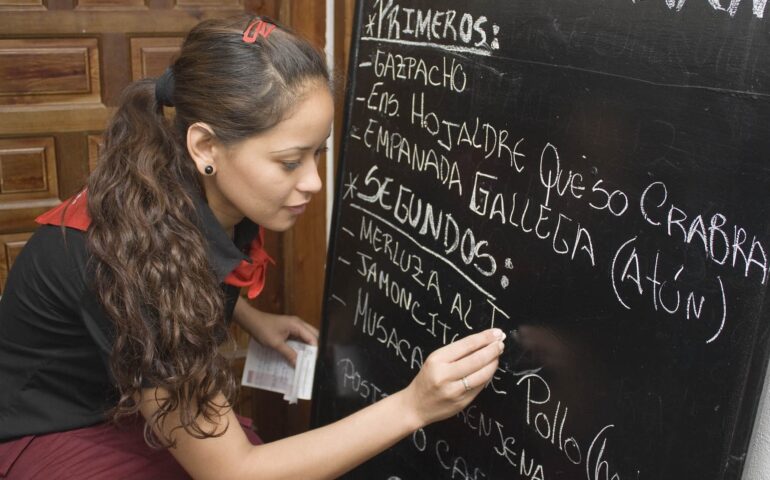 * PRIMEROS:
- GAZPACHO
- ENS. HOJALDRE QUESO CRABRA
- EMPANADA GALLEGA (ATÚN)
* SEGUNDOS:
- MERLUZA AL
- JAMONCITO
- MUSACA DE POLLO